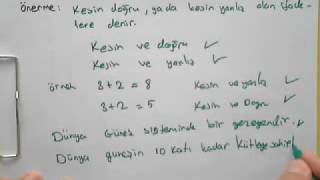 önerme: Kesin doğru, yada kesin yanlış olan ifade-
lere denir.
Kesin ve doğru ✓
Kesin ve yanlış ✓
örnek 3+2=8 Kesin ve yanlış ✓
3+2=5 Kesin ve Doğru ✓
Dünya Güneş sisteminde bir gezegendir. ✓
Dünya güneşin 10 katı kadar kütleye